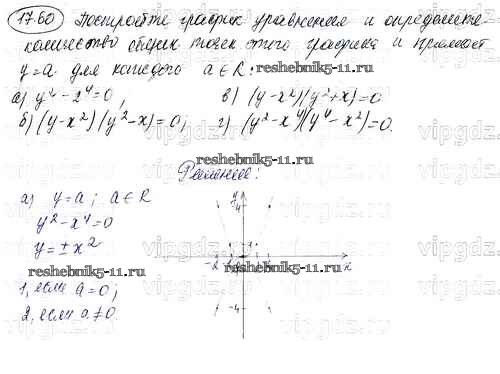 17.60 Постройте график уравнения и определите
количество общих точек этого графика и прямой
y=a для каждого a∈R:
а) y²-x⁴=0; в) (y-x²)(y²+x)=0
б) (y-x²)(y²-x)=0; г) (y²-x⁴)(y⁴-x²)=0.
reshebnik5-11.ru
Решение:
а) y=a; a∈R
y²-x⁴=0
y=±x²
reshebnik5-11.ru
1, если a=0;
2, если a≠0.
y
4
1
-2
2
x
-4
reshebnik5-11.ru
vipgdz.ru
vipgdz.ru
vipgdz.ru
vipgdz.ru